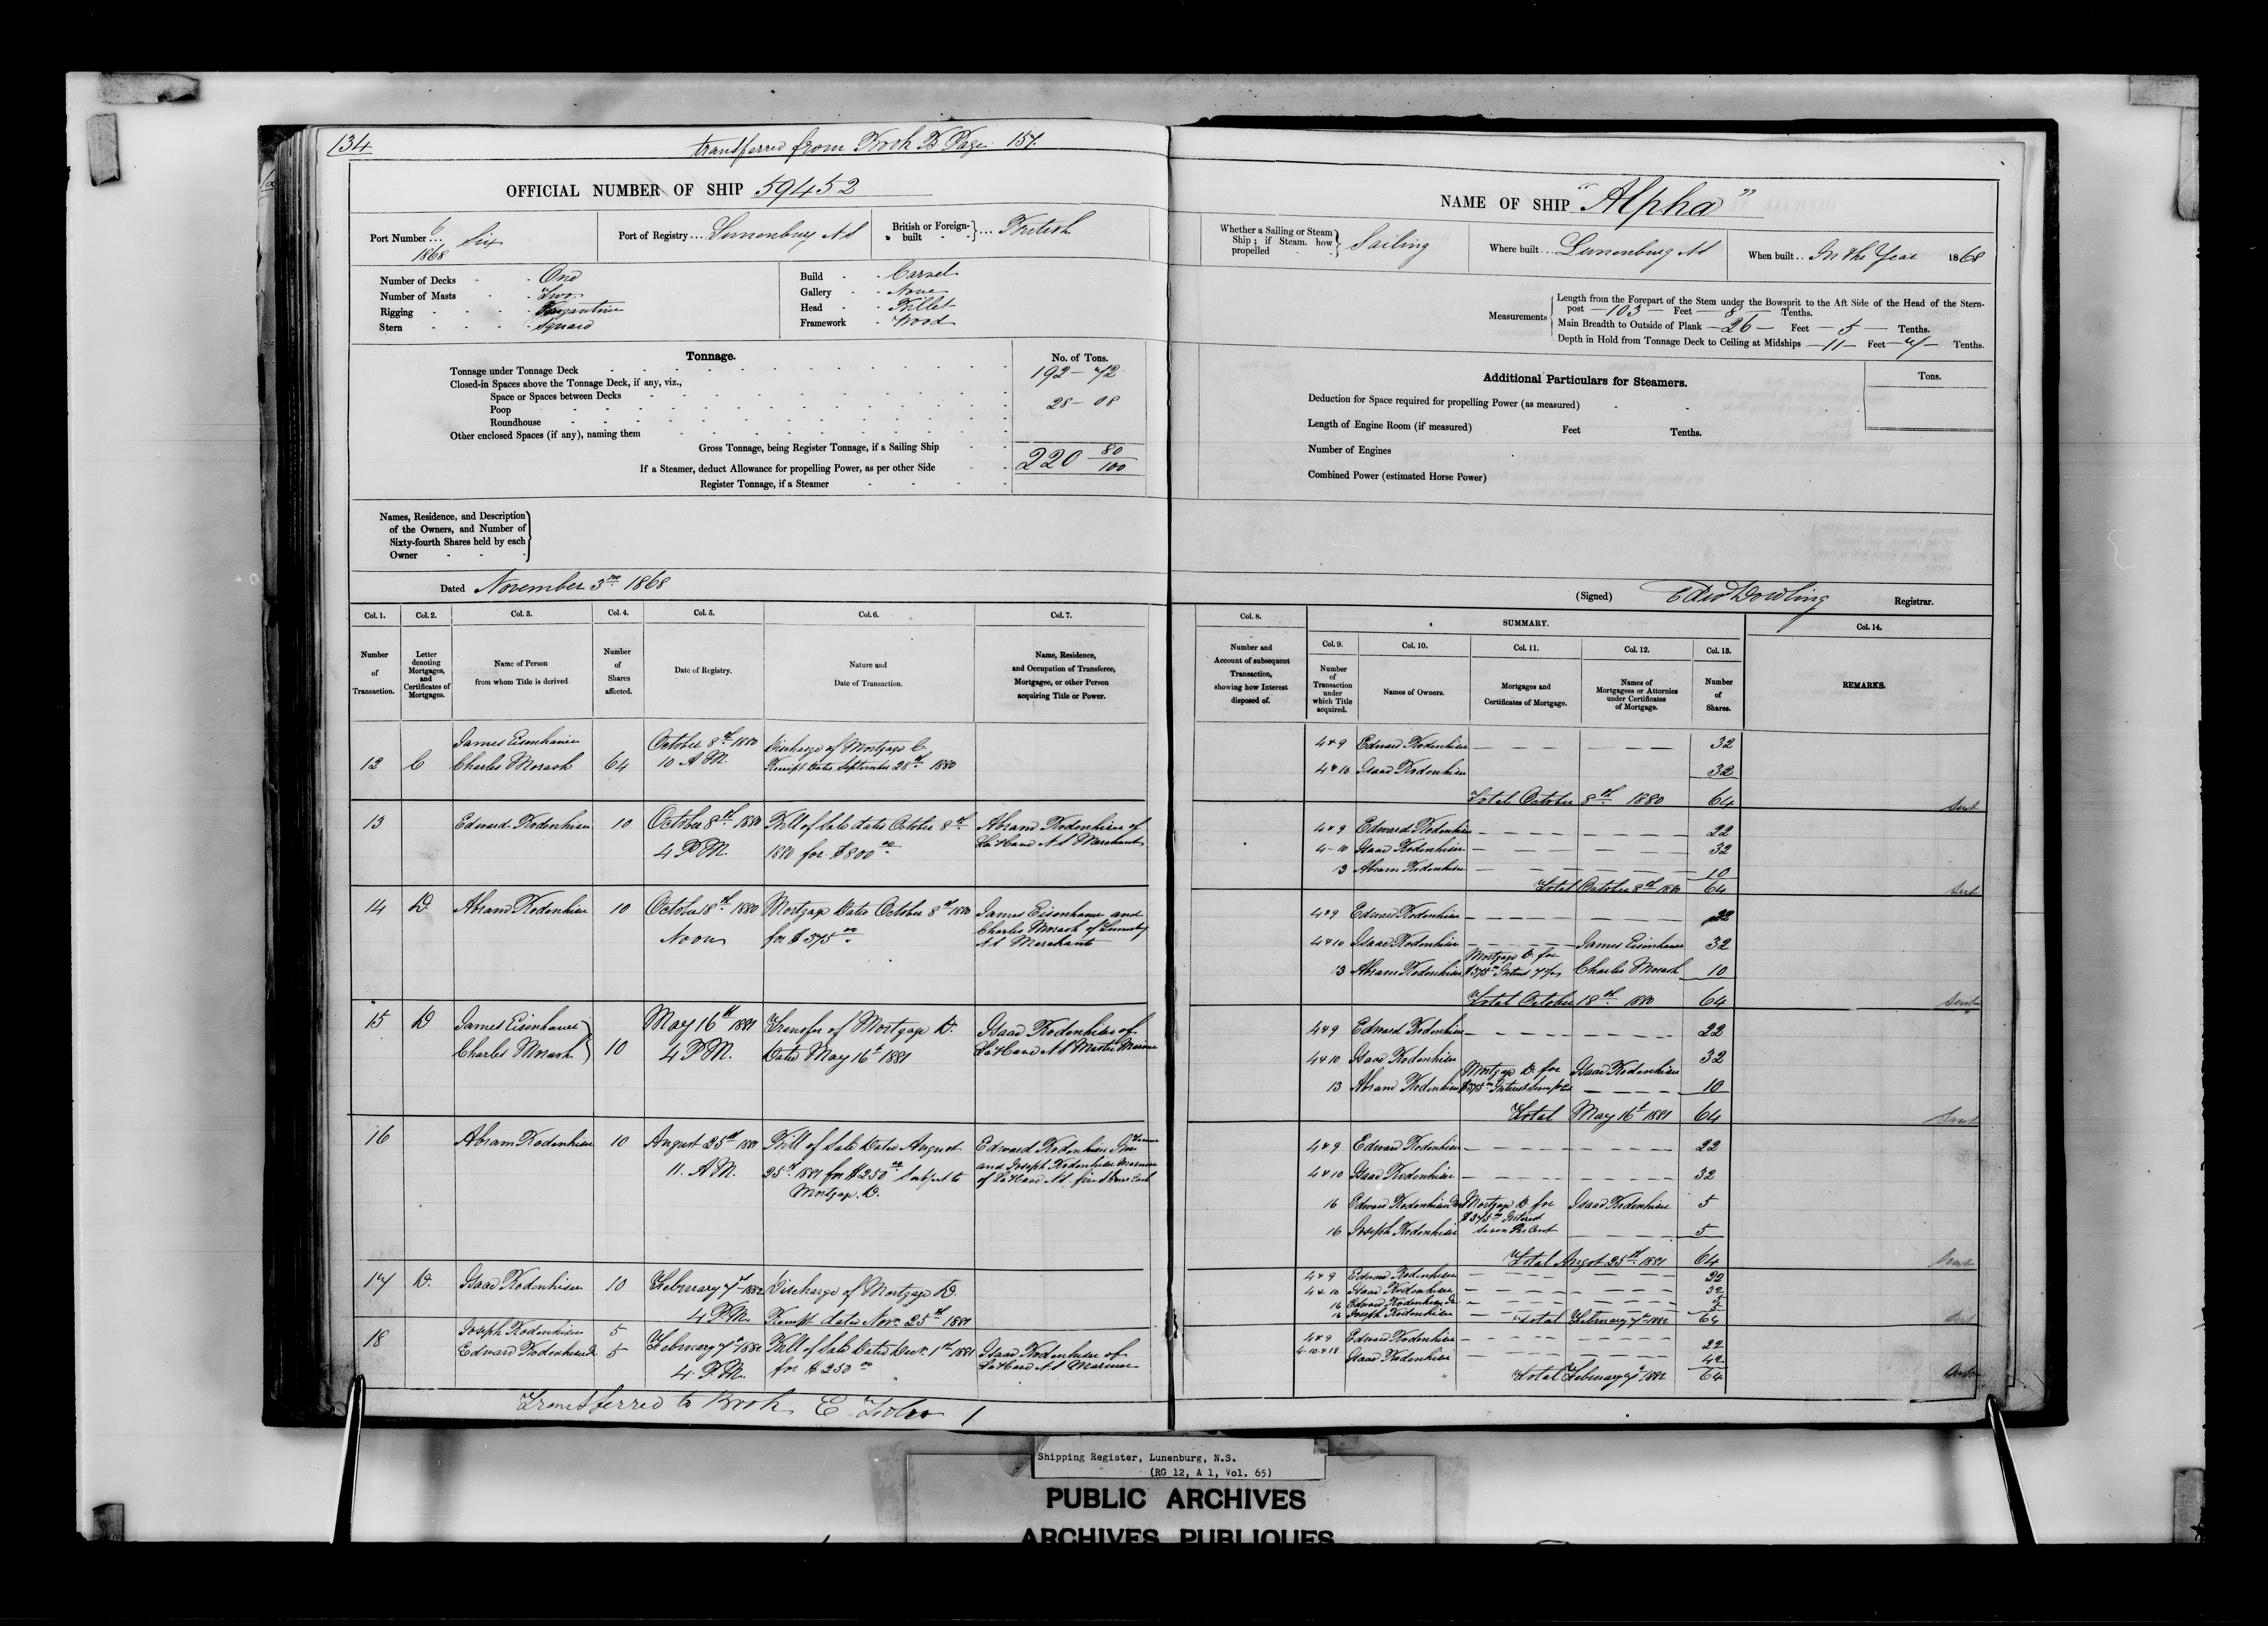 134
transferred from Book B Page 157.
OFFICIAL NUMBER OF SHIP 59452
Port Number ... 6 1868 Six
Port of Registry ... Lunenburg NS
British or Foreign-built } ... British
Number of Decks - One
Number of Masts - Two
Rigging - Brigantine
Stern - Square
Build - Carvel
Gallery - None
Head - Billet
Framework - Wood
Tonnage.
No. of Tons.
Tonnage under Tonnage Deck 192-72
Closed-in Spaces above the Tonnage Deck, if any, viz.,
Space or Spaces between Decks
Poop 28-08
Roundhouse
Other enclosed Spaces (if any), naming them
Gross Tonnage, being Register Tonnage, if a Sailing Ship 220 80/100
If a Steamer, deduct Allowance for propelling Power, as per other Side
Register Tonnage, if a Steamer
Names, Residence, and Description
of the Owners, and Number of
Sixty-fourth Shares held by each
Owner
Dated November 3rd 1868
Col. 1. Col. 2. Col. 3. Col. 4. Col. 5. Col. 6. Col. 7.
Number of Transaction.
Letter denoting Mortgages, and Certificates of Mortgages.
Name of Person from whom Title is derived
Number of Shares affected.
Date of Registry.
Nature and Date of Transaction.
Name, Residence, and Occupation of Transferee, Mortgagee, or other Person acquiring Title or Power.
12 C James Eisenhauer
Charles Morash 64
October 8th 1880
10 A M.
Discharge of Mortgage C.
Receipt dated September 28th 1880
13 Edward Rodenhiser 10
October 8th 1880
4 P.M.
Bill of Sale dated October 8th
1880 for $800 00
Abram Rodenhiser of
LaHave N S Merchant
14 D. Abram Rodenhiser 10
October 18th 1880
Noon
Mortgage Dated October 8th 1880
for $375 00
James Eisenhauer and
Charles Morash of Lunenburg
N S Merchants
15 D James Eisenhauer
Charles Morash } 10
May 16th 1881
4 P.M.
Transfer of Mortgage D.
Dated May 16th 1881
Isaac Rodenhiser of
LaHave N S Master Mariner
16 Abram Rodenhiser 10
August 25th 1881
11. A.M.
Bill of Sale Dated August
25th 1881 for $250 00 Subject to
Mortgage. D.
Edward Rodenhiser Jnr
and Joseph Rodenhiser Mariner
of LaHave N.S. five shares Each
17 D. Isaac Rodenhiser 10
February 7th 1882
4 P.M.
Discharge of Mortgage D.
Receipt dated Nov. 25th 1881
18 Joseph Rodenhiser 5
Edward Rodenhiser Jr 5
February 7th 1882
4. P.M.
Bill of Sale Dated Dec. 1st 1881
for $250 00
Isaac Rodenhiser of
LaHave N S Mariner
Transferred to Book E Folio 1
NAME OF SHIP "Alpha"
Whether a Sailing or Steam Ship; if Steam. how propelled } Sailing
Where built ... Lunenburg NS
When built .. In the Year 1868
Measurements
Length from the Forepart of the Stem under the Bowsprit to the Aft Side of the Head of the Stern-
post - 103 - Feet - 8 - Tenths.
Main Breadth to Outside of Plank - 26 - Feet - 5 - Tenths.
Depth in Hold from Tonnage Deck to Ceiling at Midships - 11 - Feet - 7 - Tenths.
Additional Particulars for Steamers.
Tons.
Deduction for Space required for propelling Power (as measured)
Length of Engine Room (if measured) Feet Tenths.
Number of Engines
Combined Power (estimated Horse Power)
(Signed) Edw Dowling Registrar.
Col. 8. SUMMARY. Col. 14.
Col. 9. Col. 10. Col. 11. Col. 12. Col. 13.
Number and Account of subsequent Transaction, showing how Interest disposed of.
Number of Transaction under which Title acquired.
Names of Owners.
Mortgages and Certificates of Mortgage.
Names of Mortgagees or Attornies under Certificates of Mortgage.
Number of Shares.
REMARKS.
4 & 9 Edward Rodenhiser 32
4 & 10 Isaac Rodenhiser 32
Total October 8th 1880 64 Sent
4 & 9 Edward Rodenhiser 22
4-10 Isaac Rodenhiser 32
13 Abram Rodenhiser 10
Total October 8th 1880 64 Sent
4 & 9 Edward Rodenhiser 22
4 & 10 Isaac Rodenhiser James Eisenhauer 32
13 Abram Rodenhiser Mortgage D. for $375 00 Charles Morash 10
Total October 18th 1880 64 Sent
4 & 9 Edward Rodenhiser 22
4 & 10 Isaac Rodenhiser 32
13 Abram Rodenhiser Mortgage D. for $375 00 Isaac Rodenhiser 10
Total May 16th 1881 64 Sent
4 & 9 Edward Rodenhiser 22
4 & 10 Isaac Rodenhiser 32
16 Edward Rodenhiser Jnr Mortgage D for Isaac Rodenhiser 5
$375 00 Interest
16 Joseph Rodenhiser Seven Per Cent 5
Total August 25th 1881 64 Sent
4 & 9 Edward Rodenhiser 22
4 & 10 Isaac Rodenhiser 32
16 Edward Rodenhiser Jr 5
16 Joseph Rodenhiser 5
Total February 7th 1882 64 Sent
4 & 9 Edward Rodenhiser 22
4-10 & 18 Isaac Rodenhiser 42
Total February 7th 1882 64 Sent
Shipping Register, Lunenburg, N.S.
(RG 12, A 1, Vol. 65)
PUBLIC ARCHIVES
ARCHIVES PUBLIQUES